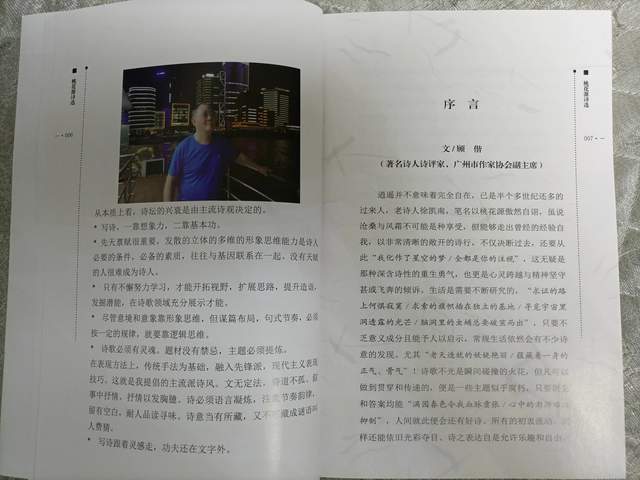 桃花源诗选
006
从本质上看，诗坛的兴衰是由主流诗观决定的。
* 写诗，一靠想象力，二靠基本功。
* 先天禀赋很重要，发散的立体的多维的形象思维能力是诗人
必要的条件，必备的素质，往往与基因联系在一起，没有天赋
的人很难成为诗人。
* 只有不懈努力学习，才能开拓视野，扩展思路，提升造诣，
发掘潜能，在诗歌领域充分展示才能。
* 尽管意境和意象靠形象思维，但谋篇布局，句式节奏，必须
按一定的规律，就要靠逻辑思维。
* 诗歌必须有灵魂。题材没有禁忌，主题必须提炼。
在表现方法上，传统手法为基础，融入先锋派，现代主义表现
技巧。这就是我提倡的主流派诗风。文无定法，诗道不孤。叙
事中抒情，抒情以发胸臆。诗必须语言凝炼，注意节奏韵律，
留有空白，耐人品读寻味。诗意当有所藏，又不可藏成谜语叫
人费猜。
* 写诗跟着灵感走，功夫还在文字外。
桃花源诗选
007
序 言
文/顾 偕
（著名诗人诗评家、广州市作家协会副主席）
逍遥并不意味着完全自在，已是半个多世纪还多的
过来人，老诗人徐凯南，笔名以桃花源傲然自诩，虽说
沧桑与风霜不可能是种享受，但能够走出曾经的经验自
我，以非常清晰的敞开的诗行，不仅决断过去，还要从
此“我化作了星空的梦/全都是你的注视”，这无疑是
那种深含诗性的重生勇气，也更是心灵跨越与精神坚守
甚或飞奔的倾诉。生活是需要不断研究的，“求证的路
上何惧寂寞/求索的旗帜插在独立的基地/寻觅宇宙黑
洞透露的光芒/脑洞里的虫蛹总要破茧而出”，只要不
乏意义成分且能予人以启示，常规生活依然会有不少诗
意的发现。尤其“
正气、骨气”！诗歌不光是瞬间碰撞的火花，但凡可以
做到贯穿和传递的，便是一些主题似乎腐朽，只要
和答案均能“满园春色令我血脉贲张/心中的
抑制”，人间就此便会还有好诗。所有的初衷
样还能依旧光彩夺目。诗之表达自是允许乐趣和自由